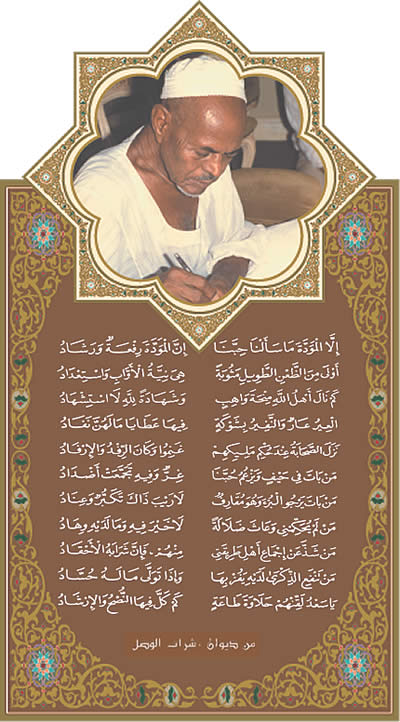 إِلَّا المَوَدَّةَ مَا سَأَلْنَا حِبَّنَا إِنَّ المَوَدَّةَ رِفْعَةٌ وَرَشَادُ
أَوْفَى مِنَ الظَّعْنِ الطَّوِيلِ مَثُوبَةً هِيَ نِيَّةُ الأَوَّابِ وَاسْتِعْدَادُ
كَمْ نَالَ أَهْلُ اللهِ مِنْحَةَ وَاهِبٍ وَشَهَادَةً لِلهِ لَا اسْتِشْهَادُ
فِيهَا عَطَايَا مَالَهُنَّ نَفَادُ
نَزَلَ الصَّحَابَةُ عِنْدَ حُكْمِ مَلِيكِهِمْ غَنِمُوا وَكَانَ الرِّفْدُ وَالإِرْفَادُ
مَنْ بَاتَ فِي حَيْفٍ وَيَزْعُمُ حُبَّنَا غِرٌّ وَفِيهِ تَجَمَّعَتْ أَضْدَادُ
مَنْ بَاتَ يَرْجُو البِرَّ وَهُوَ مُفَارِقٌ لَا رَيْبَ ذَاكَ تَكَبُّرٌ وَعِنَادُ
مَنْ لَمْ يُحَكِّمْنِي وَعَاثَ ضَلَالَةً لَا خَيْرَ فِيهِ وَمَا لَدَيْهِ وِهَادُ
مَنْ شَذَّ عَنْ إِجْمَاعِ أَهْلِ طَرِيقَتِي مِنْهُمْ فَإِنَّ شَرَابَهُ الأَحْقَادُ
مَنْ تَنْفَعِ الذِّكْرَى لَدَيْهِ يَفُزْ بِهَا وَإِذَا تَوَلَّى مَالَهُ حُسَّادُ
يَا سَعْدُ لَقِّنْهُمْ حَلَاوَةَ طَاعَةٍ كَمْ كَلَّ فِيهَا النُّصْحُ وَالإِرْشَادُ
من ديوان شراب الوصل